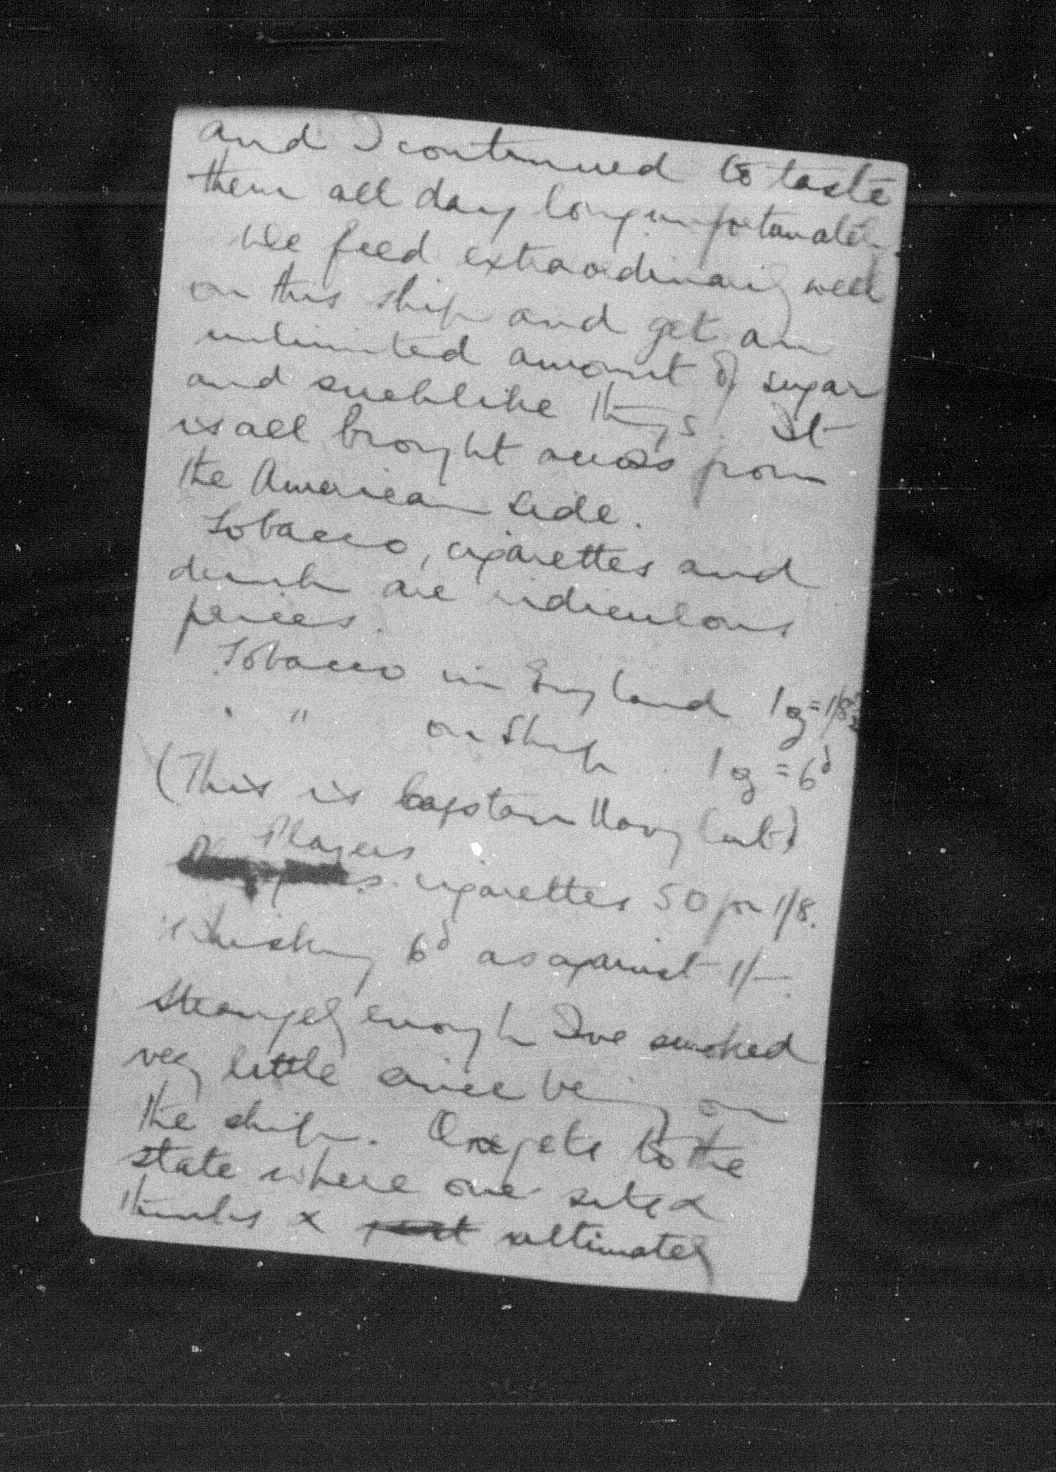 and I continued to taste
them all day long unfortunately.
We feed extraordinarily well
on this ship and get an
unlimited amount of sugar
and suchlike things. It
is all brought across from
the American side.
Tobacco, cigarettes and
drink are ridiculous
prices.
Tobacco in England 1 oz = 1/8½
" " on Ship 1 oz = 6d
(This is Capstan Navy Cut)
Players
cigarettes 50 for 1/8.
Whisky 6d as against 1/-.
Strangely enough I've smoked
very little since being on
the ship. One gets to the
state where one sits &
thinks & ultimately